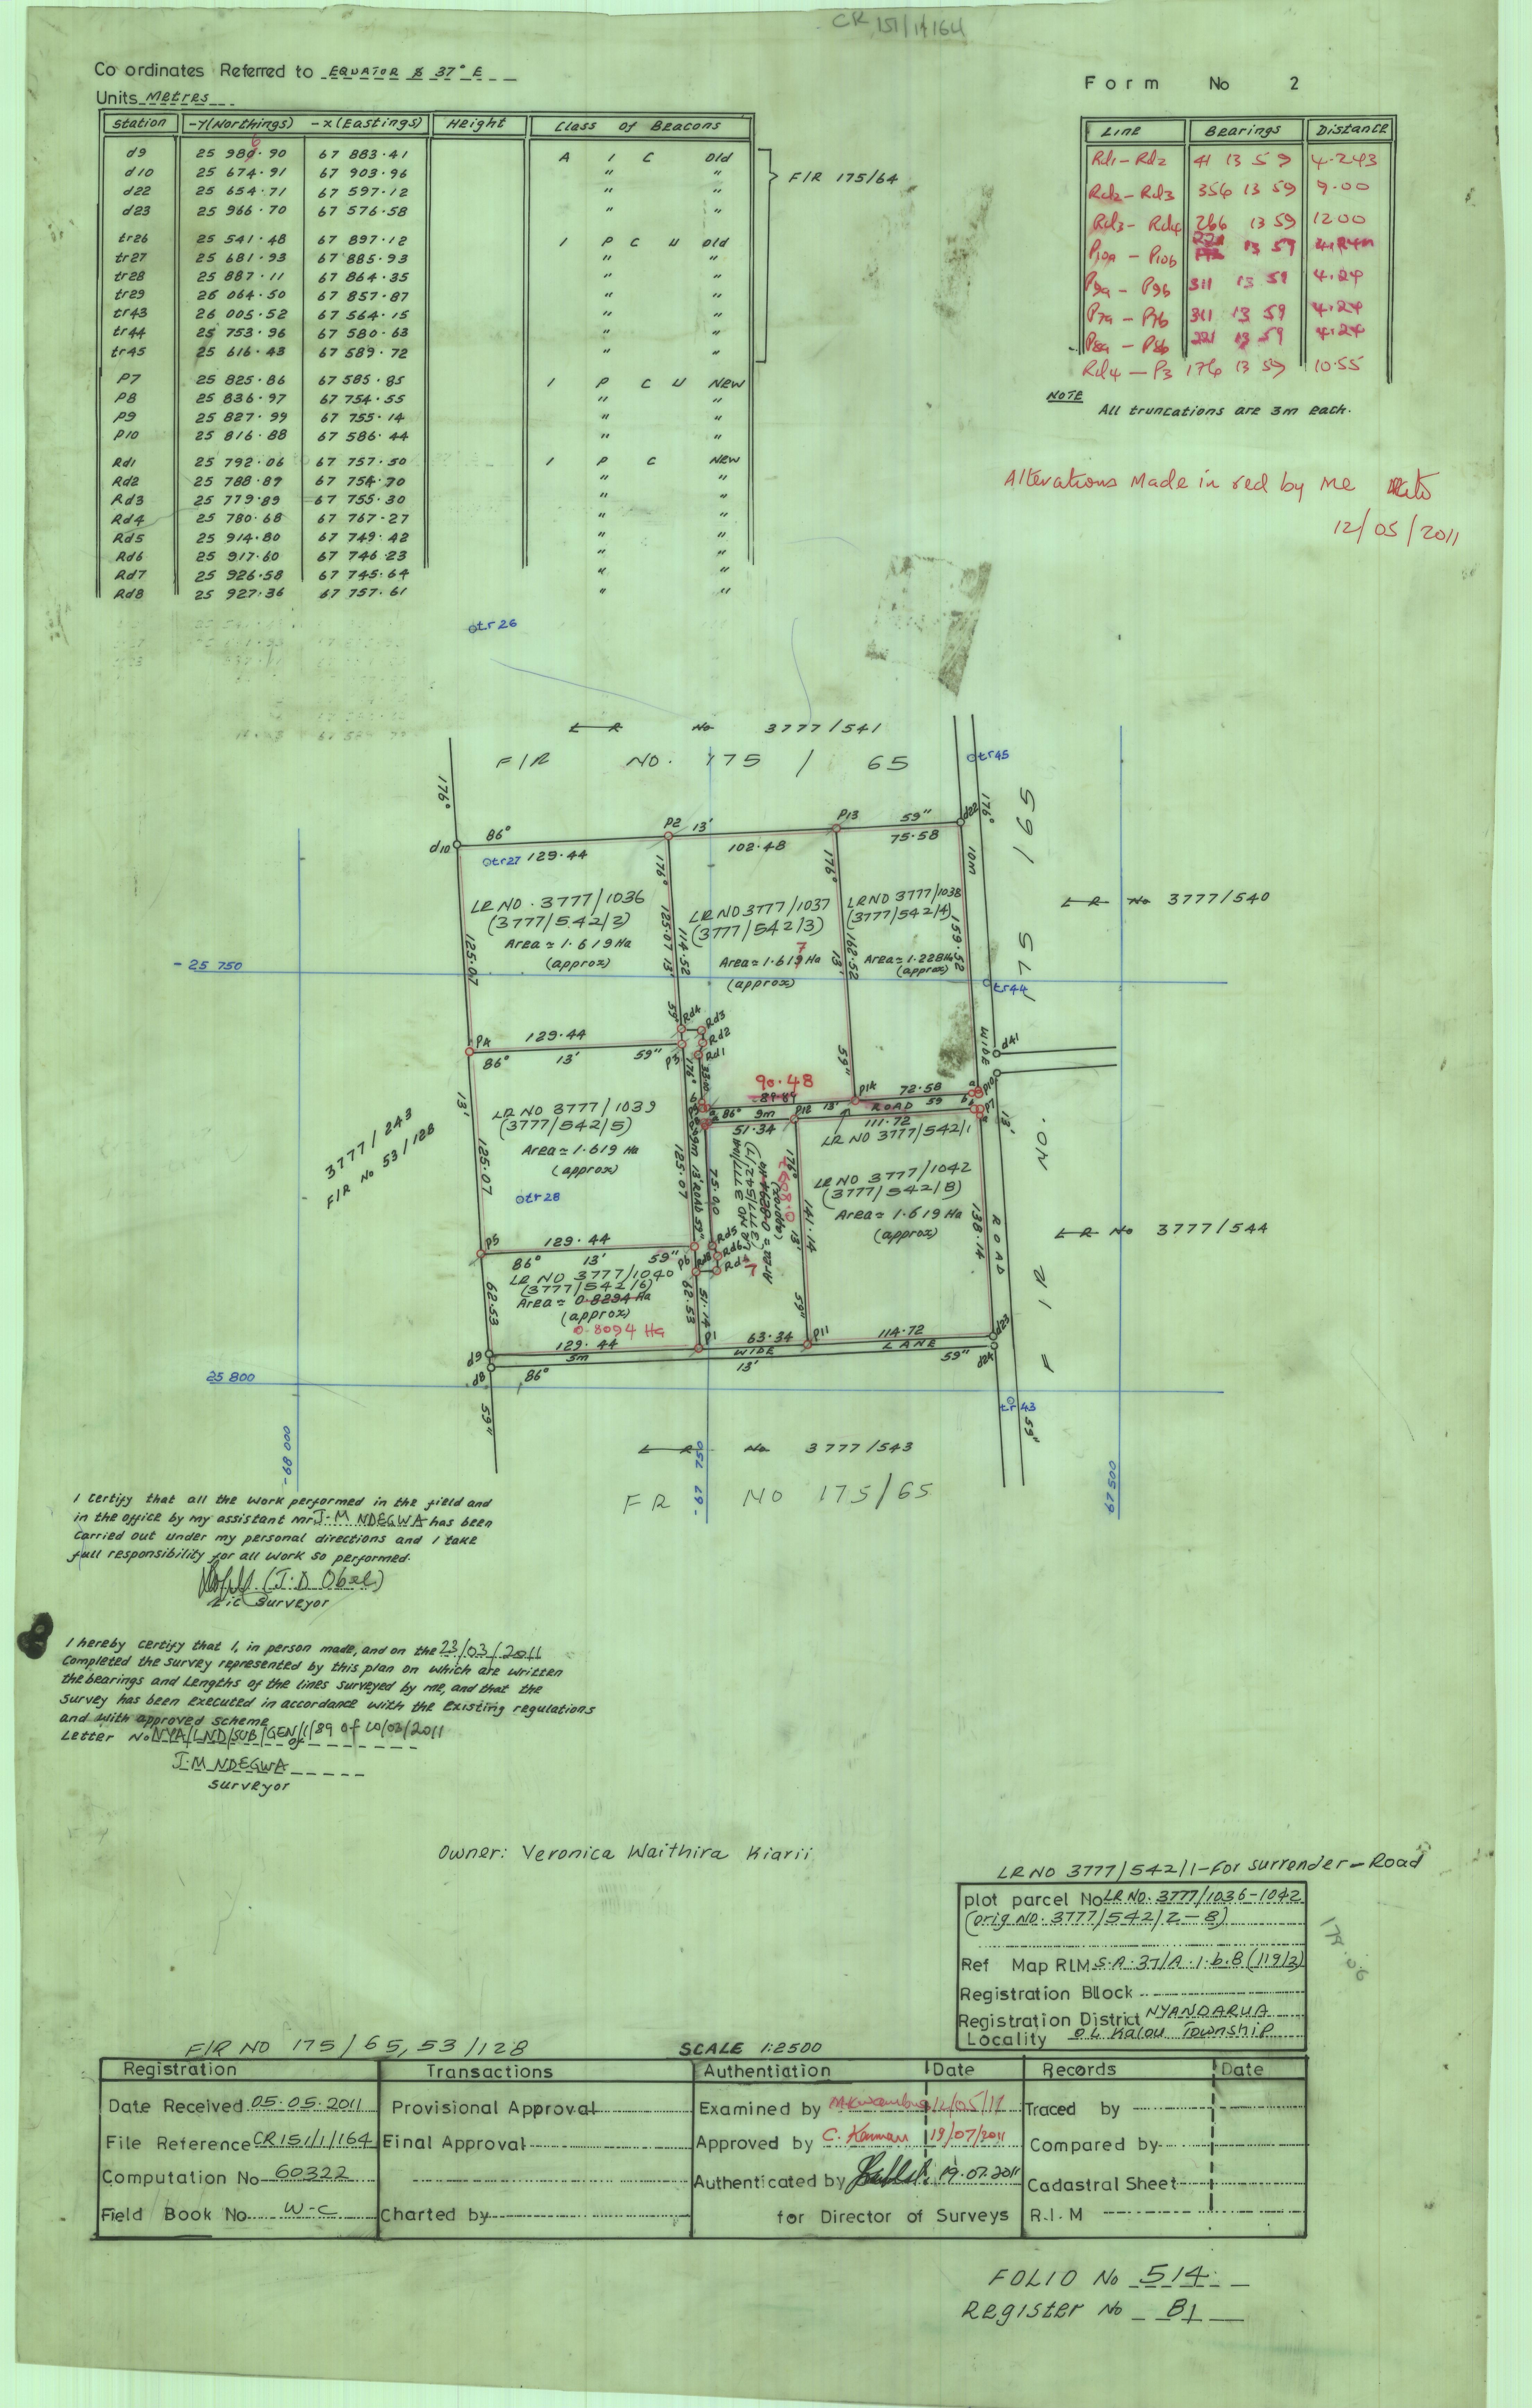 CR 151/1/164
Co ordinates Referred to EQUATOR & 37° E
Units Metres
Form No 2
Station -Y(Northings) -X(Eastings) Height Class Of Beacons
d9 25 986.90 67 883.41 A I C Old
d10 25 674.91 67 903.96 " "
d22 25 654.71 67 597.12 " "
d23 25 966.70 67 576.58 " "
F/R 175/64
tr26 25 541.48 67 897.12 I P C U Old
tr27 25 681.93 67 885.93 " "
tr28 25 887.11 67 864.35 " "
tr29 26 064.50 67 857.87 " "
tr43 26 005.52 67 564.15 " "
tr44 25 753.96 67 580.63 " "
tr45 25 616.43 67 589.72 " "
P7 25 825.86 67 585.85 I P C U New
P8 25 836.97 67 754.55 " "
P9 25 827.99 67 755.14 " "
P10 25 816.88 67 586.44 " "
Rd1 25 792.06 67 757.50 I P C New
Rd2 25 788.87 67 754.70 " "
Rd3 25 779.89 67 755.30 " "
Rd4 25 780.68 67 767.27 " "
Rd5 25 914.80 67 749.42 " "
Rd6 25 917.60 67 746.23 " "
Rd7 25 926.58 67 745.64 " "
Rd8 25 927.36 67 757.61 " "
Line Bearings Distance
Rd1-Rd2 41 13 59 4.243
Rd2-Rd3 356 13 59 9.00
Rd3-Rd4 266 13 59 1200
P10a - P10b 13 59
P9a - P9b 311 13 59 4.24
P7a - P7b 311 13 59 4.24
P8a - P8b 221 13 59 4.24
Rd4 - P3 176 13 59 10.55
NOTE
All truncations are 3m each.
Alterations Made in red by me
12/05/2011
tr26
L R No 3777/541
F/R NO. 175 / 65
tr45
176°
d10 86° P2 13' P13 59" d22 176°
tr27 129.44 102.48 75.58 10m
LR NO. 3777/1036
(3777/542/2)
Area = 1.619 Ha
(approx)
LR NO 3777/1037
(3777/542/3)
Area = 1.617 Ha
(approx)
LR NO 3777/1038
(3777/542/4)
Area = 1.228 Ha
(approx)
176° 125.07 13' 59"
114.52
176° 162.52 13' 59"
159.52
125.07
L R No 3777/540
- 25 750
tr44
WIDE
d41
P4 129.44 Rd4 Rd3
86° 13' 59" P3 Rd2
Rd1
90.48
89.84
P14 72.58 P10
86° 9m P12 13' ROAD 59 P7
51.34 111.72
LR NO 3777/542/1
LR NO 3777/1039
(3777/542/5)
Area = 1.619 Ha
(approx)
13' 125.07
176° 9m 13' ROAD 59"
125.07
75.90
LR NO 3777/1041
(3777/542/7)
Area = 0.8294 Ha
(approx)
0.8097
176° 141.14 13' 59"
LR NO 3777/1042
(3777/542/8)
Area = 1.619 Ha
(approx)
138.14
ROAD
13'
F/R NO. 175 165
L R No 3777/544
3777/243
F/R No 53/128
tr28
P5 129.44 P6 Rd5
86° 13' 59" Rd8 Rd6
Rd7
LR NO 3777/1040
(3777/542/6)
Area = 0.8294 Ha
(approx)
0.8094 Ha
62.53
62.53
51.14
129.44 P1 63.34 P11 114.72 d23
d9 5m WIDE LANE
d8 86° 13' 59" d24
25 800
tr43
59"
59"
-68 000
-67 750
67 500
L R No 3777/543
F R NO 175/65
I certify that all the work performed in the field and
in the office by my assistant mr J.M NDEGWA has been
carried out under my personal directions and I take
full responsibility for all work so performed.
(J.D Obel)
Lic Surveyor
I hereby certify that I, in person made, and on the 23/03/2011
Completed the survey represented by this plan on which are written
the bearings and Lengths of the lines surveyed by me, and that the
survey has been executed in accordance with the existing regulations
and with approved scheme
Letter No NYA/LND/SUB/GEN/1/89 of 10/02/2011
J.M NDEGWA
Surveyor
Owner: Veronica Waithira Kiarii
LR NO 3777/542/1-for surrender-Road
plot parcel No LR NO. 3777/1036-1042
(orig NO. 3777/542/2-8)
Ref Map RIM S.A.37/A.1.b.8 (119/3)
Registration Bllock
Registration District NYANDARUA
Locality OL Kalou Township
F/R NO 175/65, 53/128
SCALE 1:2500
Registration Transactions Authentiation Date Records Date
Date Received 05.05.2011 Provisional Approval Examined by 12/05/11 Traced by
File Reference CR151/1/164 Final Approval Approved by C. Kamau 19/07/2011 Compared by
Computation No 60322 Authenticated by 19.07.2011 Cadastral Sheet
Field Book No W-C Charted by for Director of Surveys R.I.M
FOLIO No 514
Register No 81